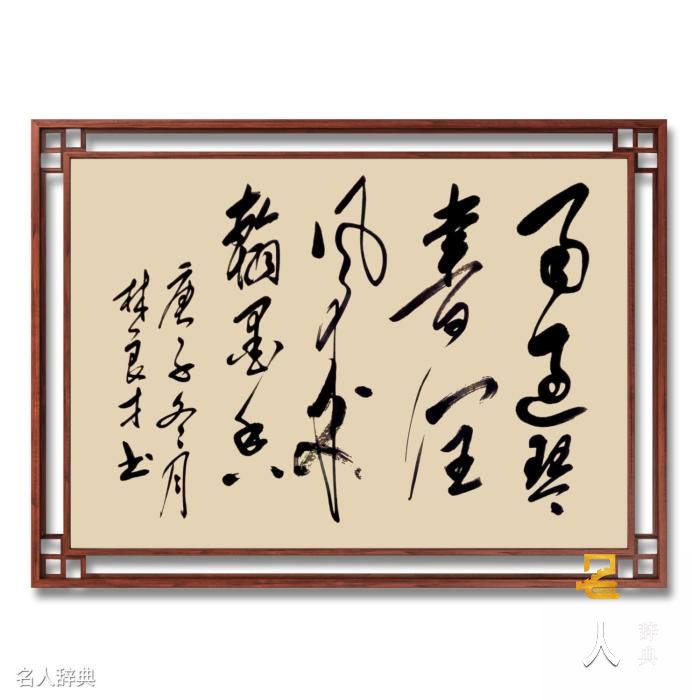 雨过琴
书润
风来
翰墨香
庚子冬月
林良才书
名人辞典
名人
辞典